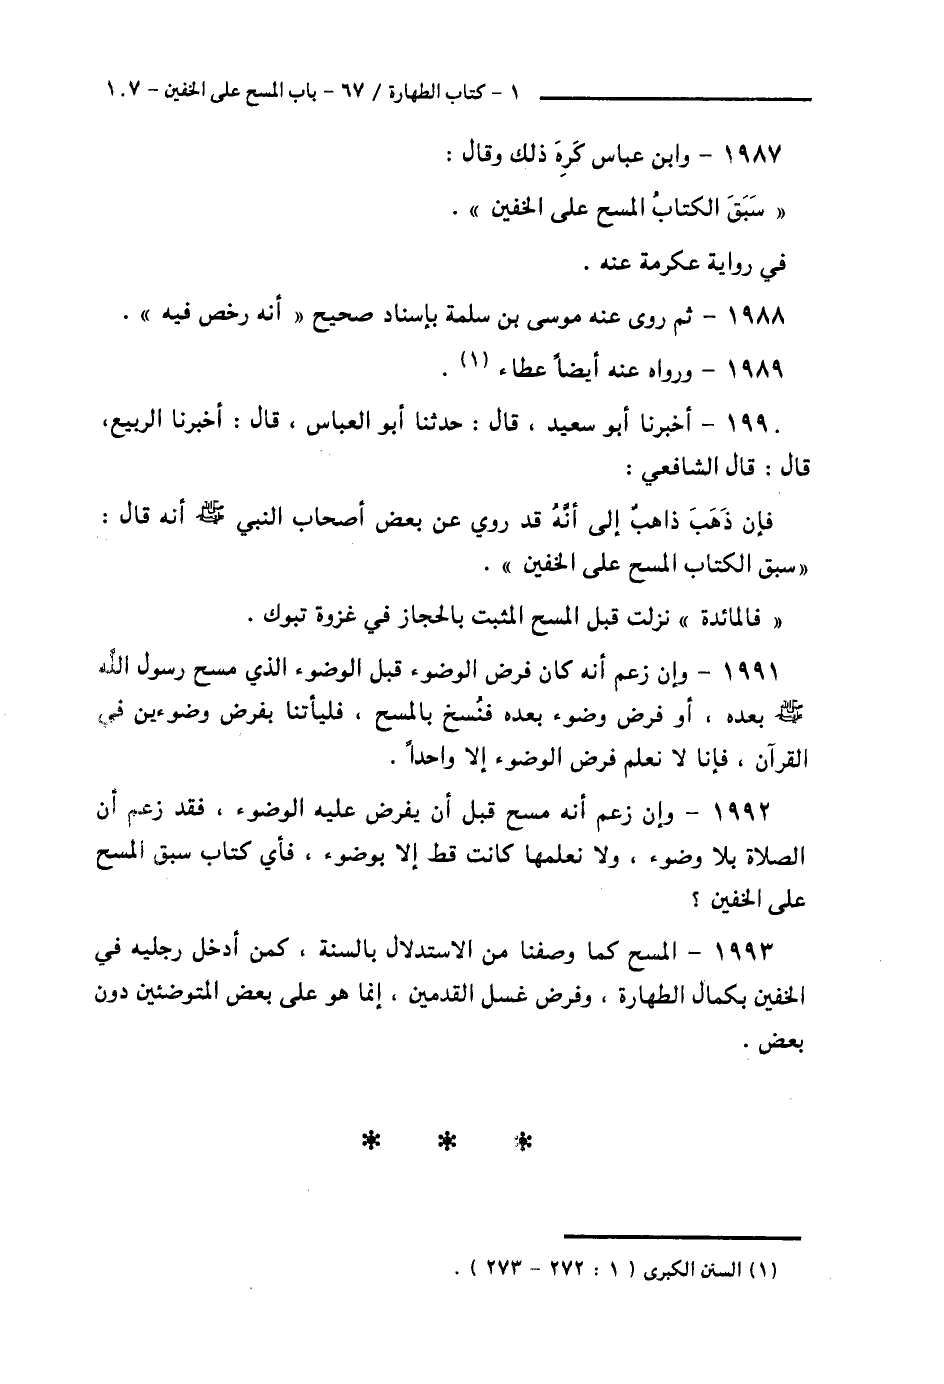 ١ - كتاب الطهارة / ٦٧ - باب المسح على الخفين - ١٠٧
١٩٨٧ - وابن عباس كَرِهَ ذلك وقال :
« سَبَقَ الكتابُ المسح على الخفين » .
في رواية عكرمة عنه .
١٩٨٨ - ثم روى عنه موسى بن سلمة بإسناد صحيح « أنه رخص فيه » .
١٩٨٩ - ورواه عنه أيضاً عطاء (١) .
١٩٩٠ - أخبرنا أبو سعيد ، قال : حدثنا أبو العباس ، قال : أخبرنا الربيع،
قال : قال الشافعي :
فإن ذَهَبَ ذاهبٌ إلى أنَّهُ قد روي عن بعض أصحاب النبي ﷺ أنه قال :
«سبق الكتاب المسح على الخفين » .
« فالمائدة » نزلت قبل المسح المثبت بالحجاز في غزوة تبوك .
١٩٩١ - وإن زعم أنه كان فرض الوضوء قبل الوضوء الذي مسح رسول اللَّه
ﷺ بعده ، أو فرض وضوء بعده فنُسخ بالمسح ، فليأتنا بفرض وضوءين في
القرآن ، فإنا لا نعلم فرض الوضوء إلا واحداً .
١٩٩٢ - وإن زعم أنه مسح قبل أن يفرض عليه الوضوء ، فقد زعم أن
الصلاة بلا وضوء ، ولا نعلمها كانت قط إلا بوضوء ، فأي كتاب سبق المسح
على الخفين ؟
١٩٩٣ - المسح كما وصفنا من الاستدلال بالسنة ، كمن أدخل رجليه في
الخفين بكمال الطهارة ، وفرض غسل القدمين ، إنما هو على بعض المتوضئين دون
بعض .
* * *
(١) السنن الكبرى ( ١ : ٢٧٢ - ٢٧٣ ) .